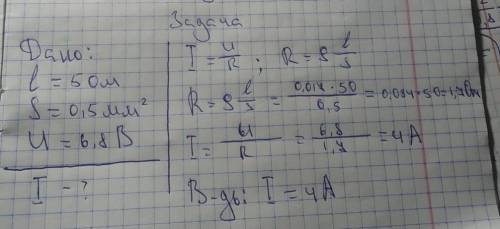 Задача
Дано:
l = 50м
S = 0,5 мм²
U = 6,8 В
I - ?
I = U/R ; R = ρ l/S
R = ρ l/S = 0,017 · 50 / 0,5 = 0,034 · 50 = 1,7 Ом
I = U/R = 6,8/1,7 = 4 А
В-дь: I = 4А